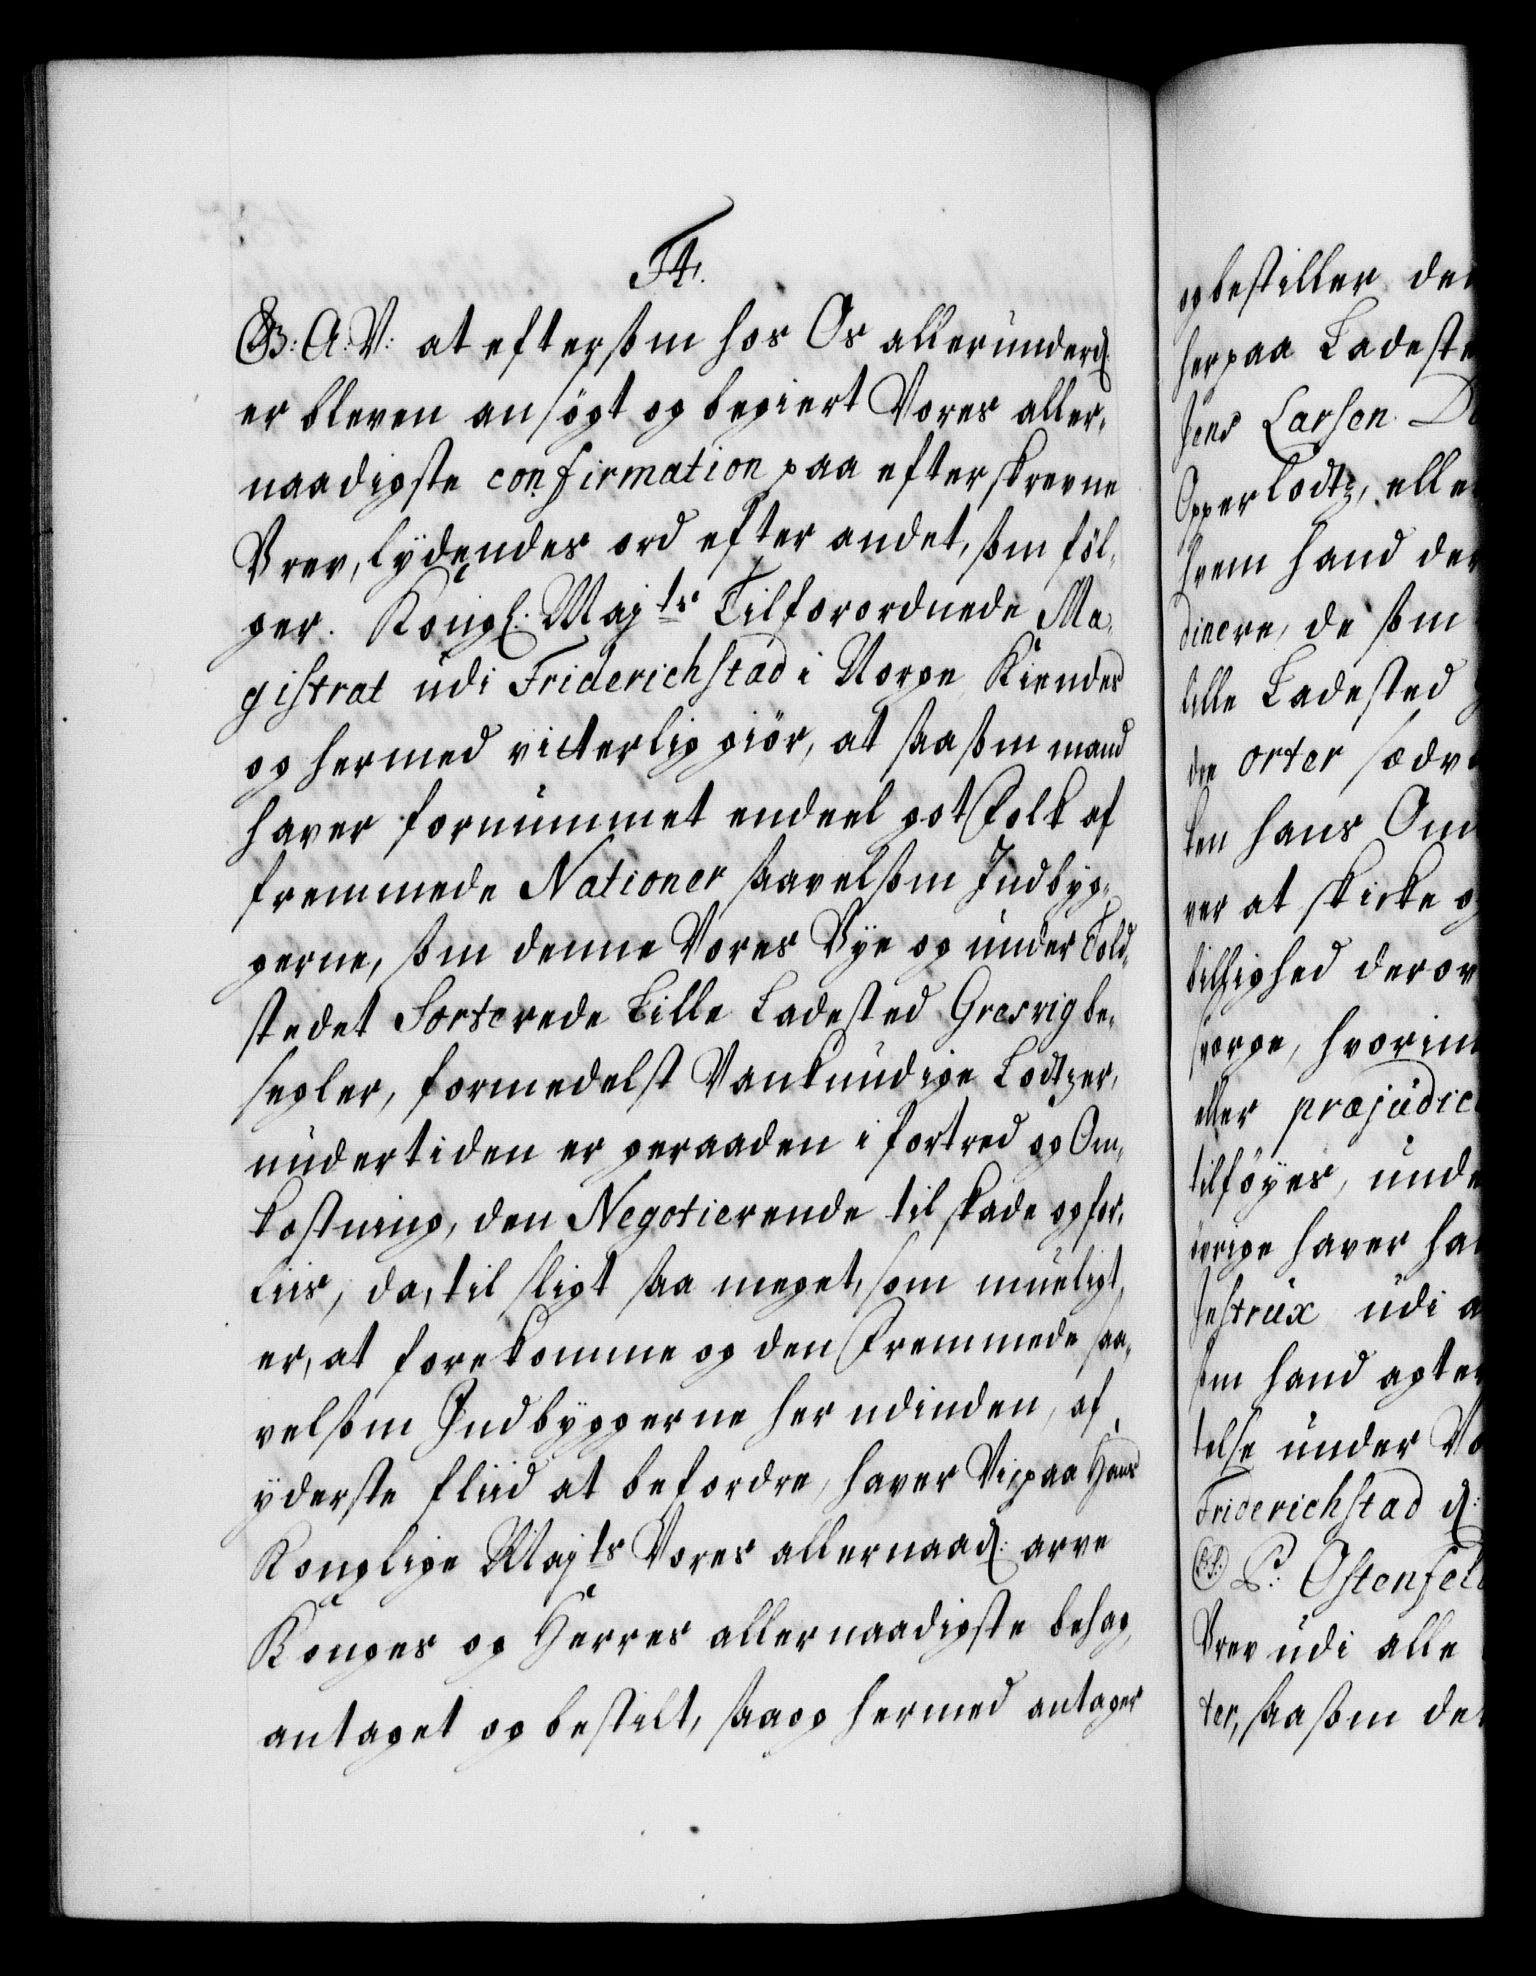 F4.
G.B: A: V: at eftersom hos Os allerunderd:
er bleven ansögt og begiert Vores aller,
naadigste confirmation paa efterskrevne
Brev, lydendes ord efter andet, som föl,
ger. Kongl: Majts Tilforordnede Ma,
gistrat udi Friderichstad i Norge Kiendes
og hermed vitterlig giör, at saasom mand
haver fornummet endeel got Folk af
fremmede Nationer saavelsom Indbyg,
gerne, som denne Vores Bye og under Told,
stedet Sorterede Lille Ladested Gresvig be,
segler, formedelst Vankundige Lodtzer,
undertiden er geraaden i fortred og Om,
kostning, den Negotierende til skade og for,
liis, da, til sligt saa meget, som mueligt
er, at forekomme og den Fremmede saa,
velsom Indbyggerne her udinden, af
yderste fliid at befordre, haver Vi paa Hans
Konglige Majts Vores allernaad: arve
Konges og Herres allernaadigste behag,
antaget og bestilt, saa og hermed antager
og bestiller
her paa Ladeste
Jens Larsen
Opperlodtz, elle
hvem hand der
dinere, de som
lille Ladested
orter sædv
ken hans Om
ver at skicke og
billighed derov
sörge, hvorim
eller præjudice
tilföyes, unde
övrige haver ha
Jestrux udi a
som hand agter
telse under Vo
Friderichstad d:
(L.S.) P: Ostenfeld
Brev udi alle
ter, saasom de